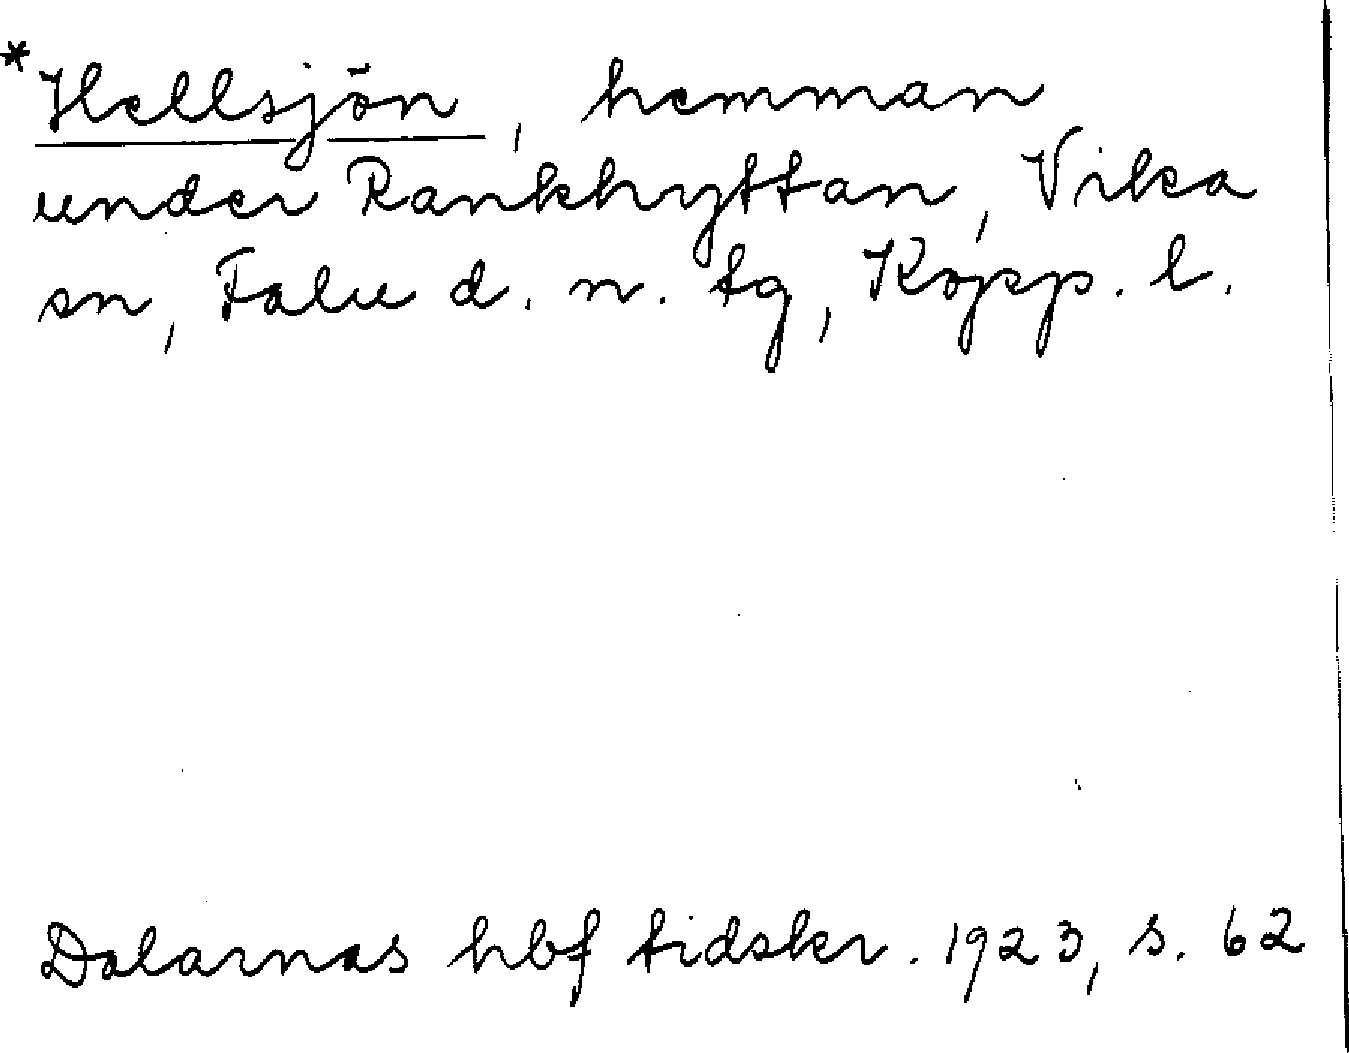 *Hellsjön, hemman
under Rankhyttan, Vika
sn, Falu d. n. tg, Kopp. l.
Dalarnas hbf tidskr. 1923, s. 62